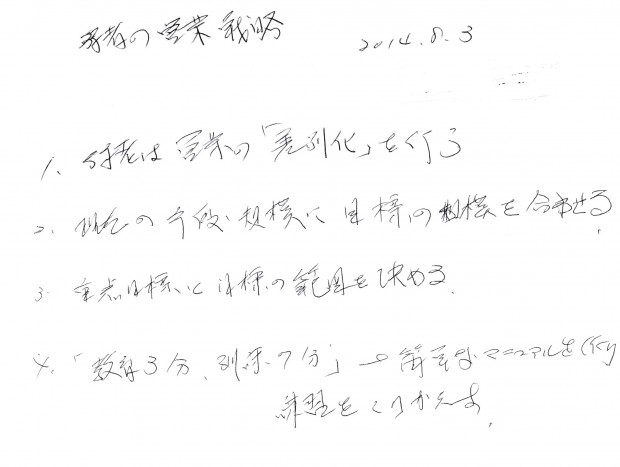 弱者の営業戦略 2014.8.3
1. 弱者は営業の「差別化」を行う
2. 現在の手段・規模に目標の規模を合わせる.
3. 重点目標と目標の範囲を決める.
4. 「教育3分、訓練7分」→簡単なマニュアルを作り
練習をくりかえす.